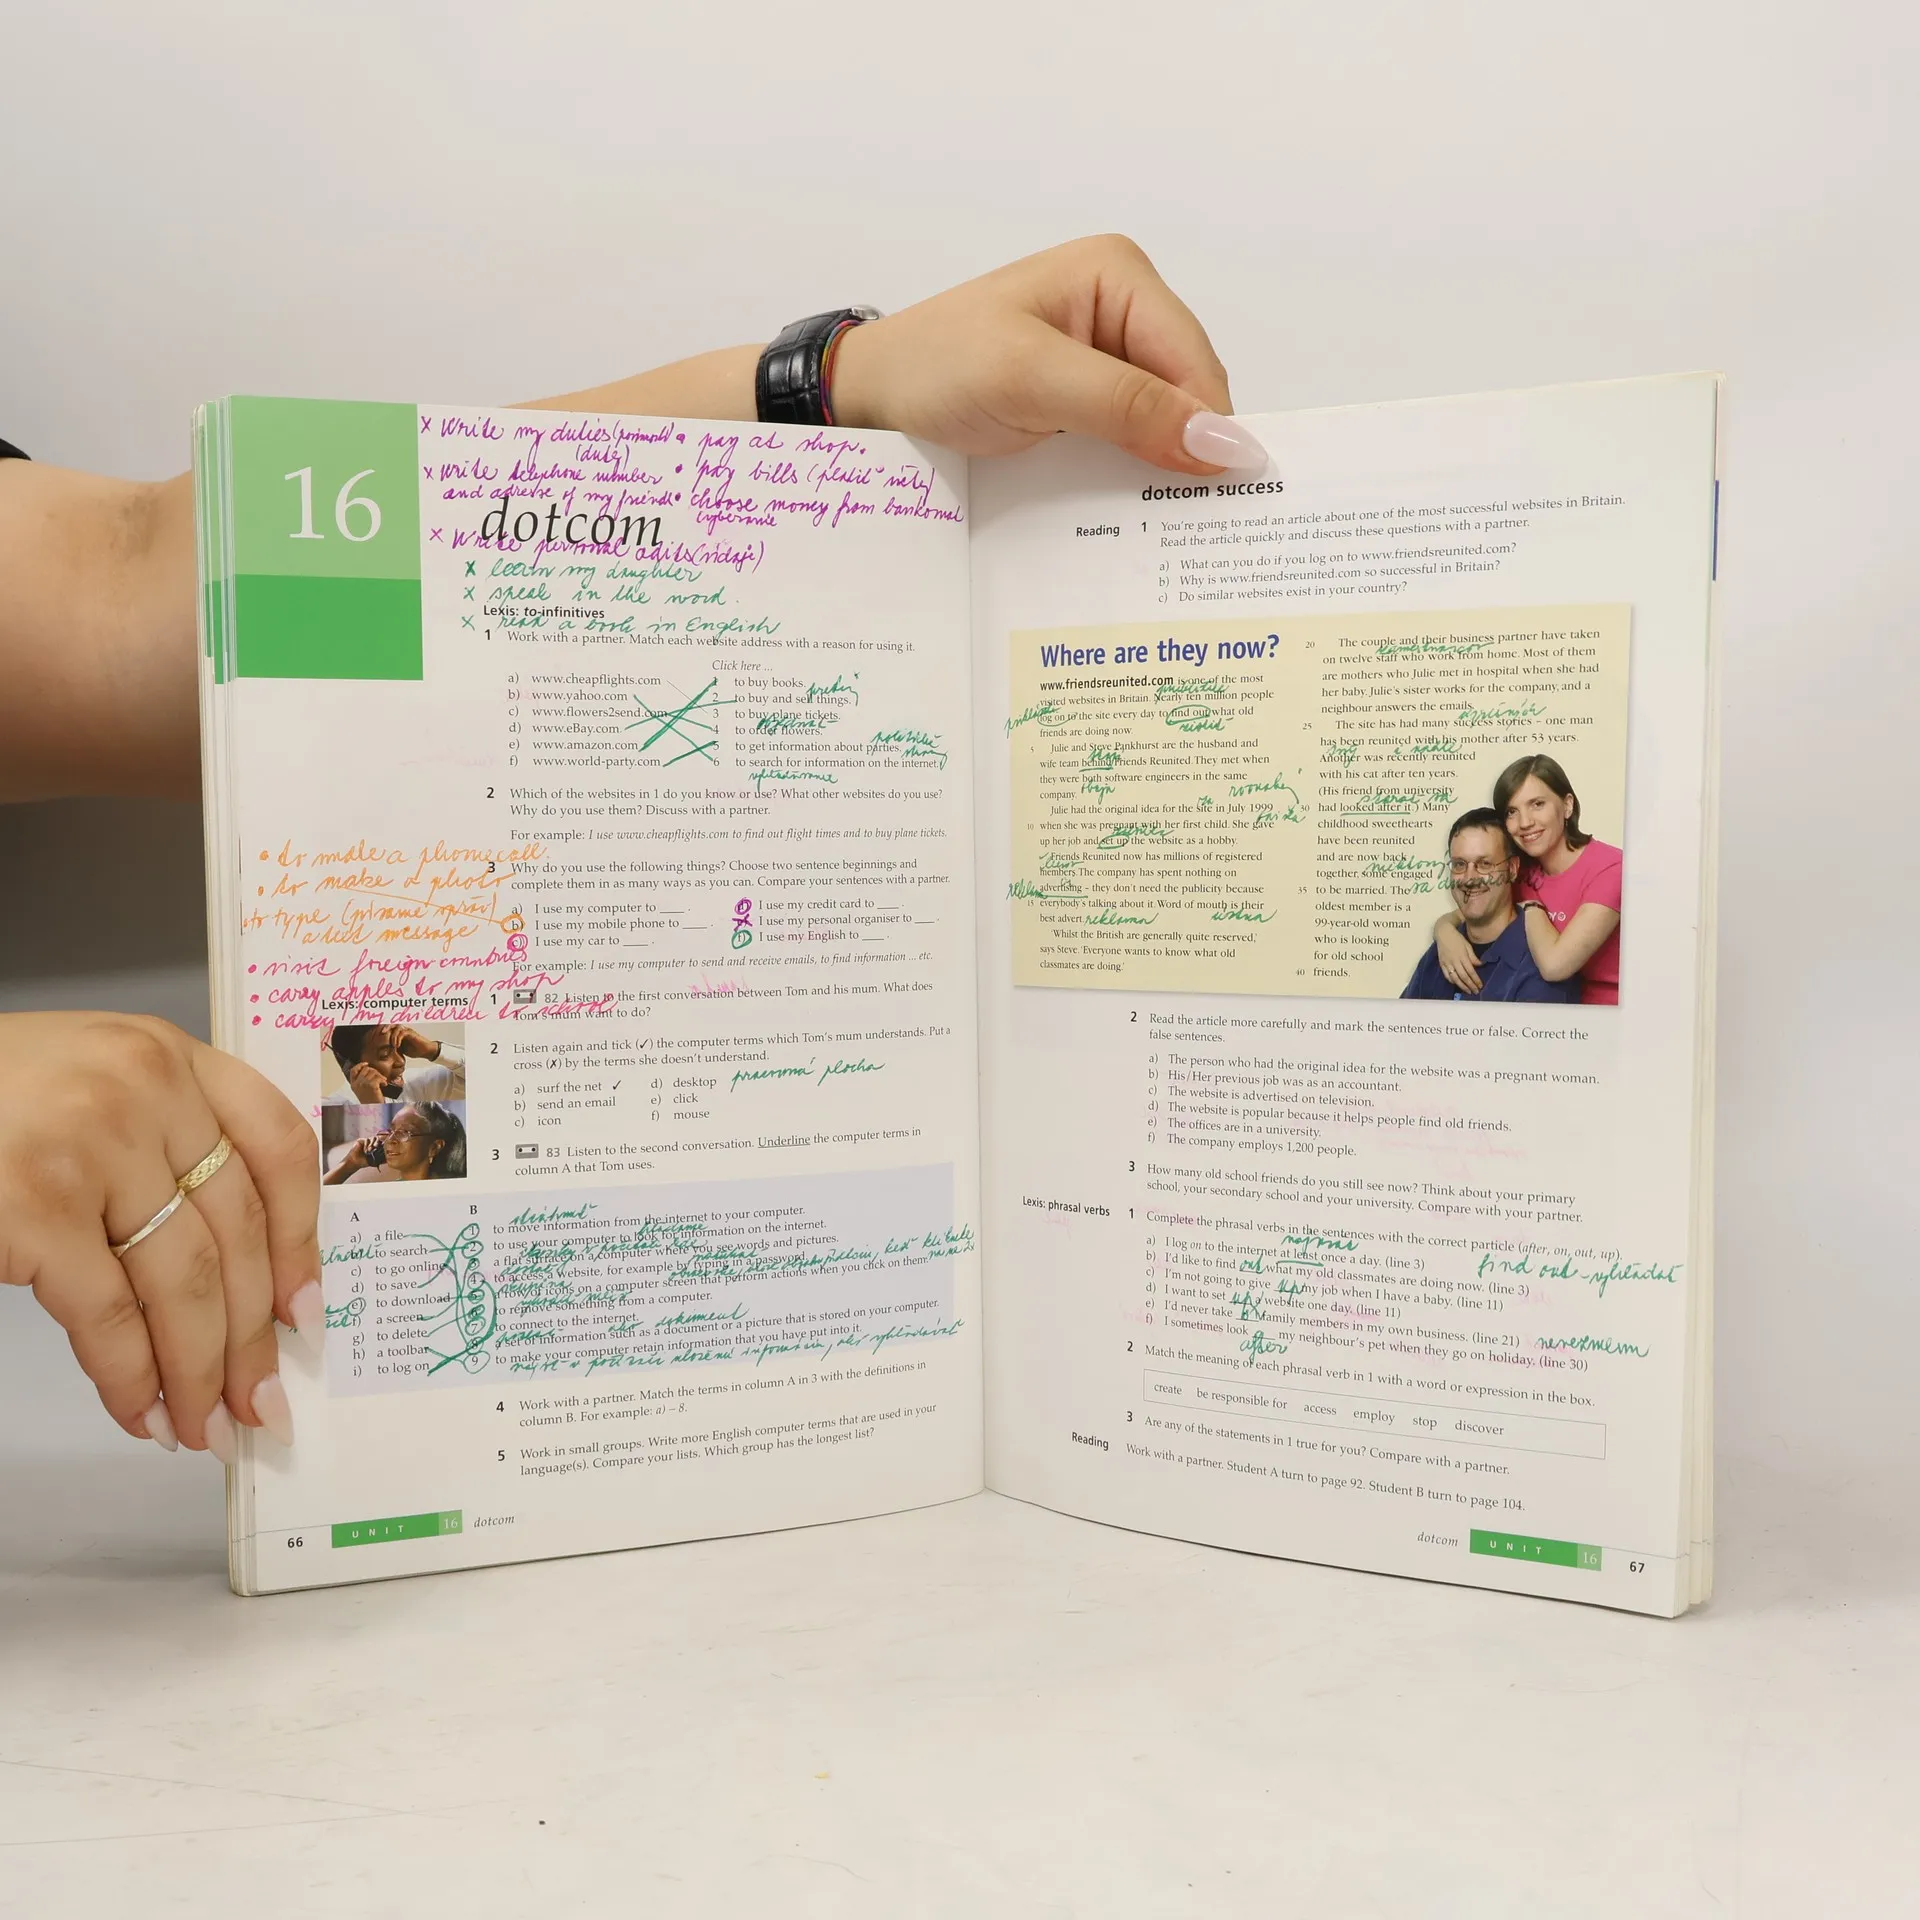 16
x Write my duties
(duty)
• pay at shop.
x write telephone number
• pay bills (platiť účty)
and adresse of my friends
• choose money from bankomat
vyberanie
dotcom
x Write personal adits (údaje)
x learn my daughter
x speak in the word.
Lexis: to-infinitives
x read a book in English
1 Work with a partner. Match each website address with a reason for using it.
Click here ...
a) www.cheapflights.com
b) www.yahoo.com
c) www.flowers2send.com
d) www.eBay.com
e) www.amazon.com
f) www.world-party.com
1 to buy books.
2 to buy and sell things.
3 to buy plane tickets.
objednať
4 to order flowers.
5 to get information about parties.
6 to search for information on the internet.
vyhľadávanie
2 Which of the websites in 1 do you know or use? What other websites do you use?
Why do you use them? Discuss with a partner.
For example: I use www.cheapflights.com to find out flight times and to buy plane tickets.
• to make a phonecall.
• to make a photo
• to type (písanie správ)
a text message
• visit foreign countries
• carry apples to my shop
• carry my children to school
3 Why do you use the following things? Choose two sentence beginnings and
complete them in as many ways as you can. Compare your sentences with a partner.
a) I use my computer to ____ .
b) I use my mobile phone to ____ .
c) I use my car to ____ .
d) I use my credit card to ____ .
e) I use my personal organiser to ____ .
f) I use my English to ____ .
For example: I use my computer to send and receive emails, to find information ... etc.
Lexis: computer terms
1 82 Listen to the first conversation between Tom and his mum. What does
Tom's mum want to do?
2 Listen again and tick (✓) the computer terms which Tom's mum understands. Put a
cross (✗) by the terms she doesn't understand.
a) surf the net ✓
b) send an email
c) icon
d) desktop pracovná plocha
e) click
f) mouse
3 83 Listen to the second conversation. Underline the computer terms in
column A that Tom uses.
A
a) a file
b) to search
c) to go online
d) to save
e) to download
f) a screen
g) to delete
h) a toolbar
i) to log on
B
stiahnuť
1 to move information from the internet to your computer.
hľadanie
2 to use your computer to look for information on the internet.
3 a flat surface on a computer where you see words and pictures.
4 to access a website, for example by typing in a password.
5 a row of icons on a computer screen that perform actions when you click on them.
6 to remove something from a computer.
7 to connect to the internet.
ako dokument
8 a set of information such as a document or a picture that is stored on your computer.
9 to make your computer retain information that you have put into it.
4 Work with a partner. Match the terms in column A in 3 with the definitions in
column B. For example: a) – 8.
5 Work in small groups. Write more English computer terms that are used in your
language(s). Compare your lists. Which group has the longest list?
66 UNIT 16 dotcom
dotcom success
Reading
1 You're going to read an article about one of the most successful websites in Britain.
Read the article quickly and discuss these questions with a partner.
a) What can you do if you log on to www.friendsreunited.com?
b) Why is www.friendsreunited.com so successful in Britain?
c) Do similar websites exist in your country?
Where are they now?
www.friendsreunited.com is one of the most
visited websites in Britain. Nearly ten million people
log on to the site every day to find out what old
zistiť
friends are doing now.
5 Julie and Steve Pankhurst are the husband and
wife team behind Friends Reunited. They met when
they were both software engineers in the same
company.
obaja
Julie had the original idea for the site in July 1999
10 when she was pregnant with her first child. She gave
up her job and set up the website as a hobby.
Friends Reunited now has millions of registered
members. The company has spent nothing on
advertising – they don't need the publicity because
15 everybody's talking about it. Word of mouth is their
best advert. reklama ústna
'Whilst the British are generally quite reserved,'
says Steve. 'Everyone wants to know what old
classmates are doing.'
20 The couple and their business partner have taken
on twelve staff who work from home. Most of them
are mothers who Julie met in hospital when she had
her baby. Julie's sister works for the company, and a
neighbour answers the emails.
25 The site has had many success stories – one man
has been reunited with his mother after 53 years.
Another was recently reunited
with his cat after ten years.
(His friend from university
starať sa
30 had looked after it.) Many
childhood sweethearts
have been reunited
and are now back
together, some engaged
35 to be married. The
oldest member is a
99-year-old woman
who is looking
for old school
40 friends.
2 Read the article more carefully and mark the sentences true or false. Correct the
false sentences.
a) The person who had the original idea for the website was a pregnant woman.
b) His/Her previous job was as an accountant.
c) The website is advertised on television.
d) The website is popular because it helps people find old friends.
e) The offices are in a university.
f) The company employs 1,200 people.
3 How many old school friends do you still see now? Think about your primary
school, your secondary school and your university. Compare with your partner.
Lexis: phrasal verbs
1 Complete the phrasal verbs in the sentences with the correct particle (after, on, out, up).
a) I log on to the internet at least once a day. (line 3)
b) I'd like to find out what my old classmates are doing now. (line 3)
find out - vyhľadať
c) I'm not going to give up my job when I have a baby. (line 11)
d) I want to set up a website one day. (line 11)
e) I'd never take on family members in my own business. (line 21) nevezmem
f) I sometimes look __ my neighbour's pet when they go on holiday. (line 30)
after
2 Match the meaning of each phrasal verb in 1 with a word or expression in the box.
create be responsible for access employ stop discover
3 Are any of the statements in 1 true for you? Compare with a partner.
Reading
Work with a partner. Student A turn to page 92. Student B turn to page 104.
dotcom UNIT 16 67